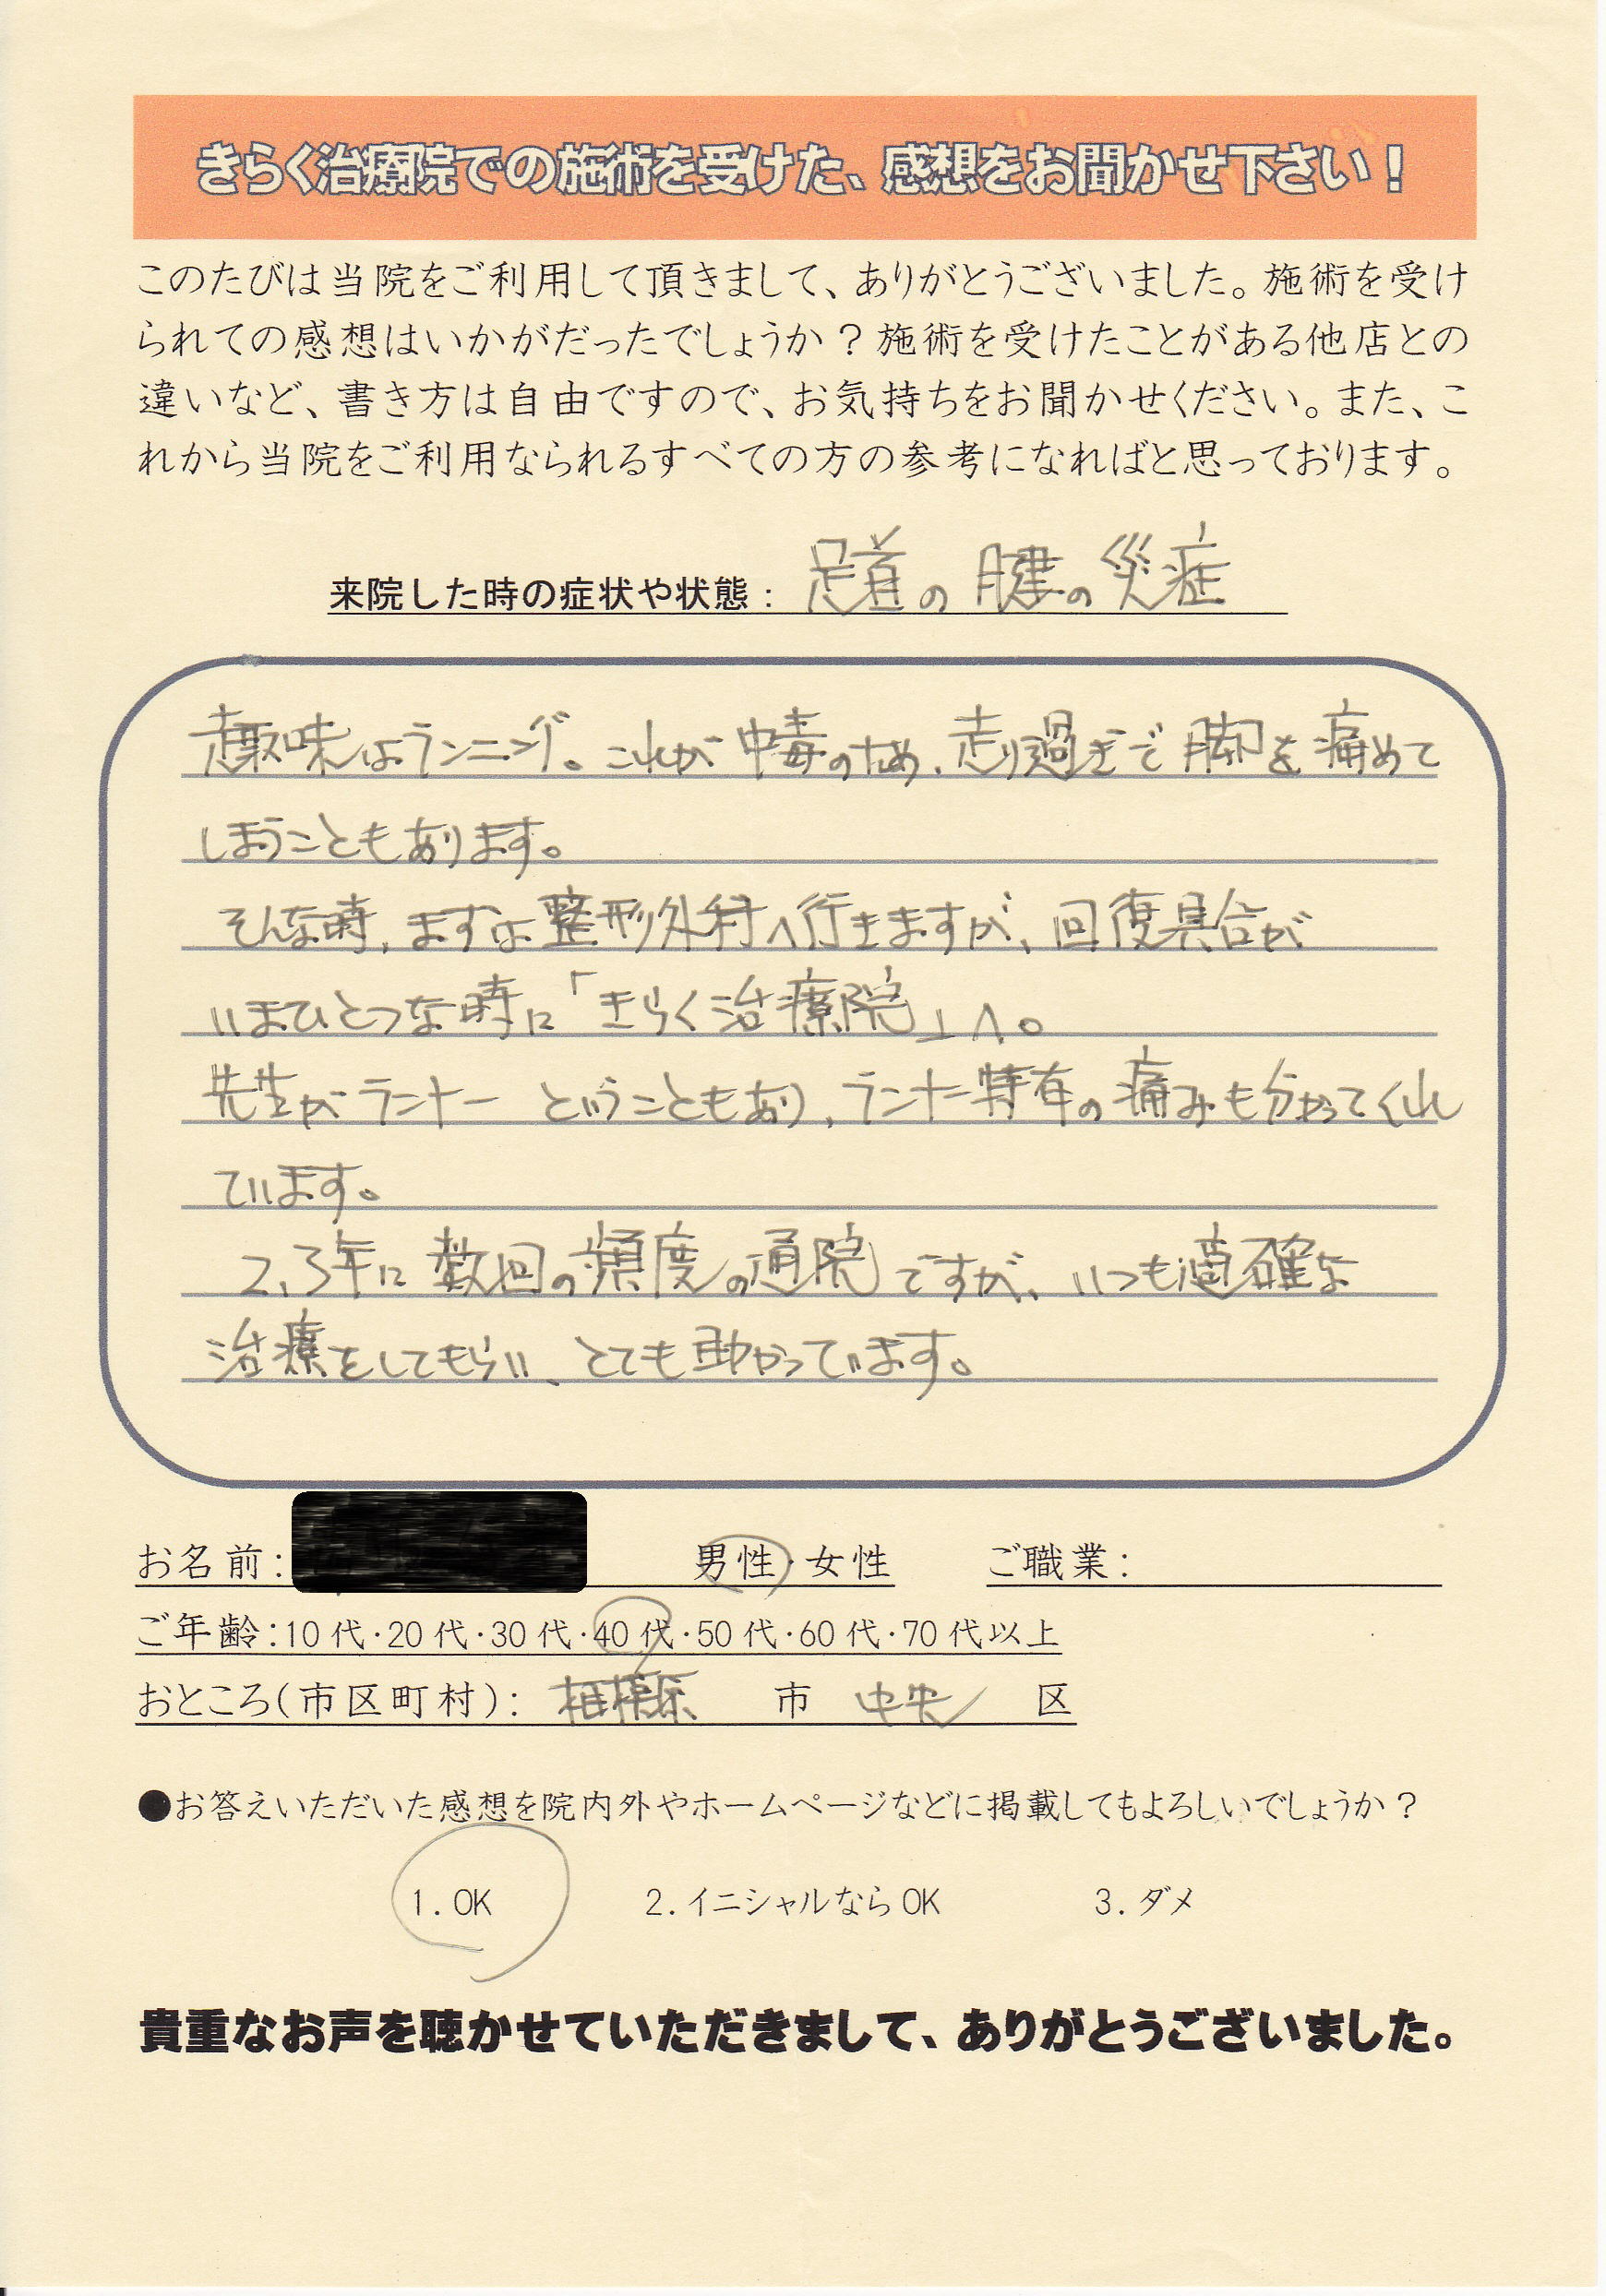 きらく治療院での施術を受けた、感想をお聞かせ下さい！
このたびは当院をご利用して頂きまして、ありがとうございました。施術を受け
られての感想はいかがだったでしょうか？施術を受けたことがある他店との
違いなど、書き方は自由ですので、お気持ちをお聞かせください。また、こ
れから当院をご利用なられるすべての方の参考になればと思っております。
来院した時の症状や状態： 足首の腱の炎症
趣味はランニング。これが中毒のため、走り過ぎで脚を痛めて
しまうこともあります。
そんな時、まずは整形外科へ行きますが、回復具合が
いまひとつな時に「きらく治療院」へ。
先生がランナーということもあり、ランナー特有の痛みも分かってくれ
ています。
2、3年に数回の頻度の通院ですが、いつも適確な
治療をしてもらい、とても助かっています。
お名前： 男性・女性 ご職業：
ご年齢：10代・20代・30代・40代・50代・60代・70代以上
おところ（市区町村）： 相模原 市 中央 区
●お答えいただいた感想を院内外やホームページなどに掲載してもよろしいでしょうか？
1．OK 2．イニシャルならOK 3．ダメ
貴重なお声を聴かせていただきまして、ありがとうございました。